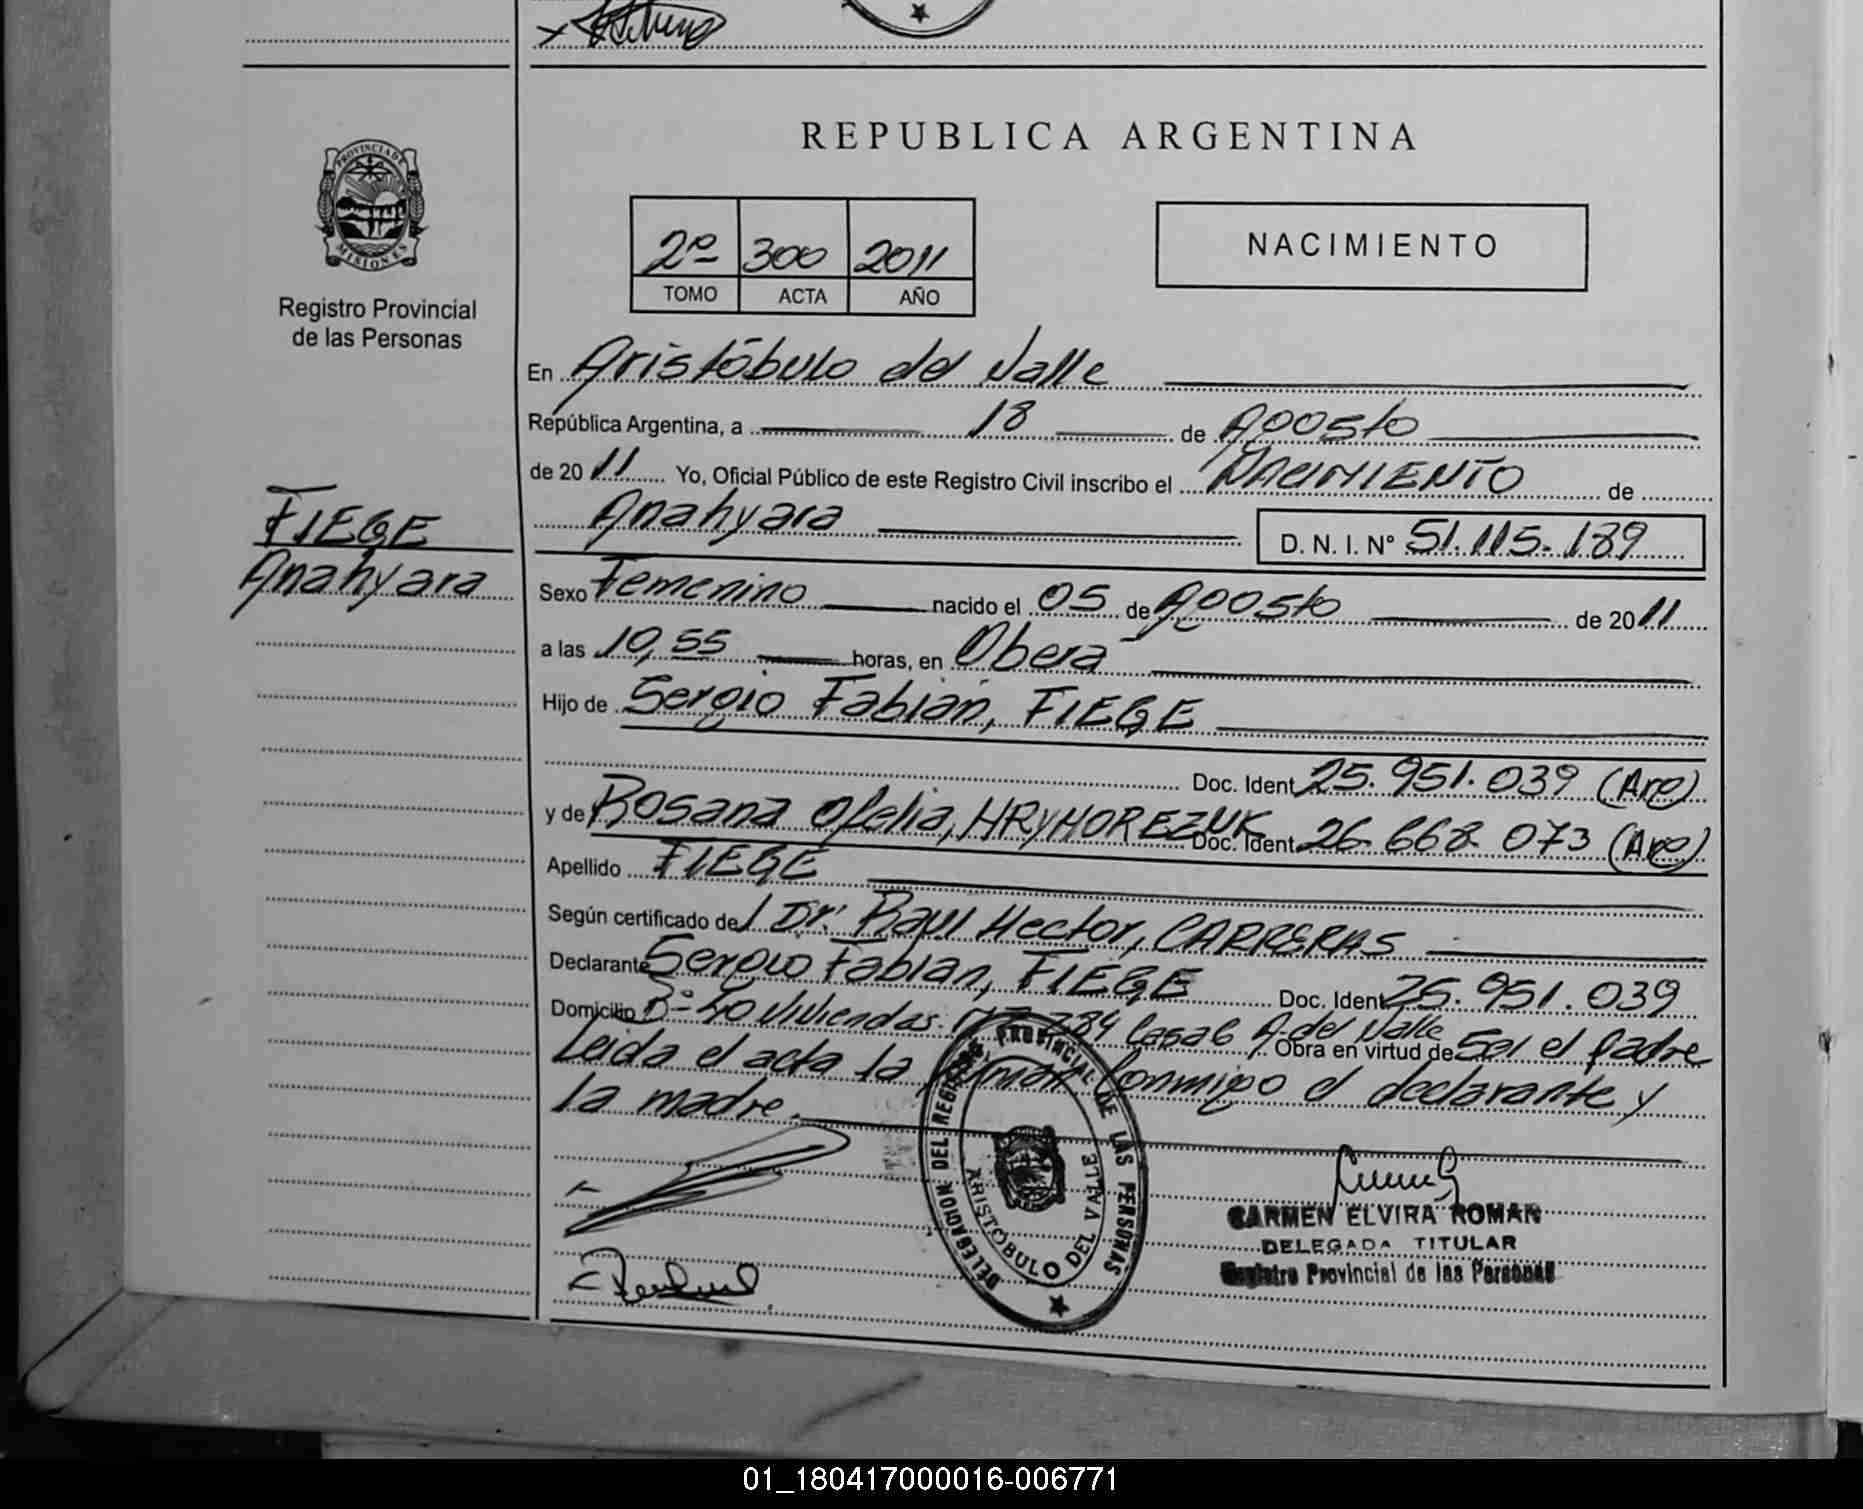 REPUBLICA ARGENTINA
PROVINCIA DE MISIONES
Registro Provincial
de las Personas
2º 300 2011
TOMO ACTA AÑO
NACIMIENTO
En Aristóbulo del Valle
República Argentina, a 18 de Agosto
de 2011 Yo, Oficial Público de este Registro Civil inscribo el NACIMIENTO de
Anahyara D. N. I. Nº 51.115.189
FIEGE
Anahyara
Sexo Femenino nacido el 05 de Agosto de 2011
a las 10,55 horas, en Oberá
Hijo de Sergio Fabián, FIEGE
Doc. Ident. 25.951.039 (Arg)
y de Rosana Ofelia, HRYHOREZUK Doc. Ident. 26.668.073 (Arg)
Apellido FIEGE
Según certificado del Dr. Raul Hector, CARRERAS
Declarante Sergio Fabián, FIEGE Doc. Ident. 25.951.039
Domicilio Bº 40 Viviendas. 284 Casa 6 A. del Valle Obra en virtud de Ser el padre
Leída el acta la firman Conmigo el declarante y
la madre.
DELEGACION DEL REGISTRO PROVINCIAL DE LAS PERSONAS
ARISTÓBULO DEL VALLE
CARMEN ELVIRA ROMAN
DELEGADA TITULAR
Registro Provincial de las Personas
01_180417000016-006771